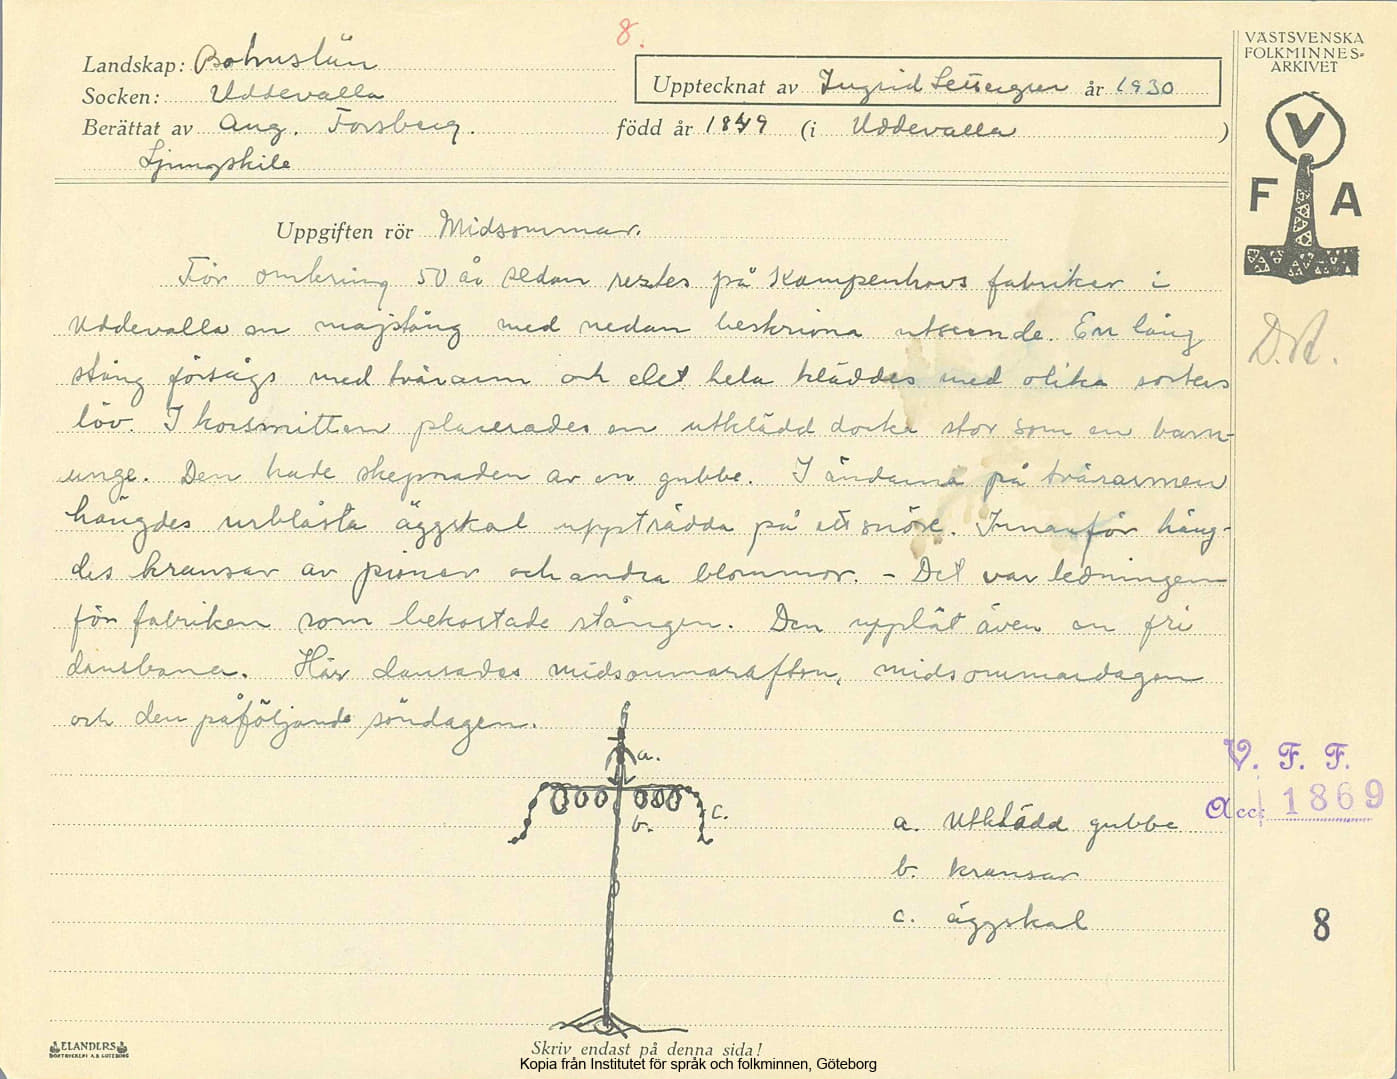 8.
VÄSTSVENSKA
FOLKMINNES-
ARKIVET
Landskap: Bohuslän
Socken: Uddevalla
Upptecknat av Ingrid år 1930
Berättat av Aug. Forsberg.
född år 1849 (i Uddevalla)
Ljungskile
V
F A
Uppgiften rör Midsommar.
För omkring 50 år sedan restes på Kampenhovs fabriker i
Uddevalla en majstång med nedan beskrivna utseende. En lång
stång försågs med tvärarm och det hela kläddes med olika sorters
löv. I korsmitten placerades en utklädd docka stor som en barn-
unge. Den hade skepnaden av en gubbe. I ändarna på tvärarmen
hängdes urblåsta äggskal uppträdda på ett snöre. Innanför häng-
des kransar av pioner och andra blommor. - Det var ledningen
för fabriken som bekostade stången. Den upplät även en fri
dansbana. Här dansades midsommarafton, midsommardagen
och den påföljande söndagen.
a.
b.
c.
a. Utklädd gubbe
b. kransar
c. äggskal
V. F. F.
Acc. 1869
8
ELANDERS
BOKTRYCKERI A.B. GÖTEBORG
Skriv endast på denna sida!
Kopia från Institutet för språk och folkminnen, Göteborg